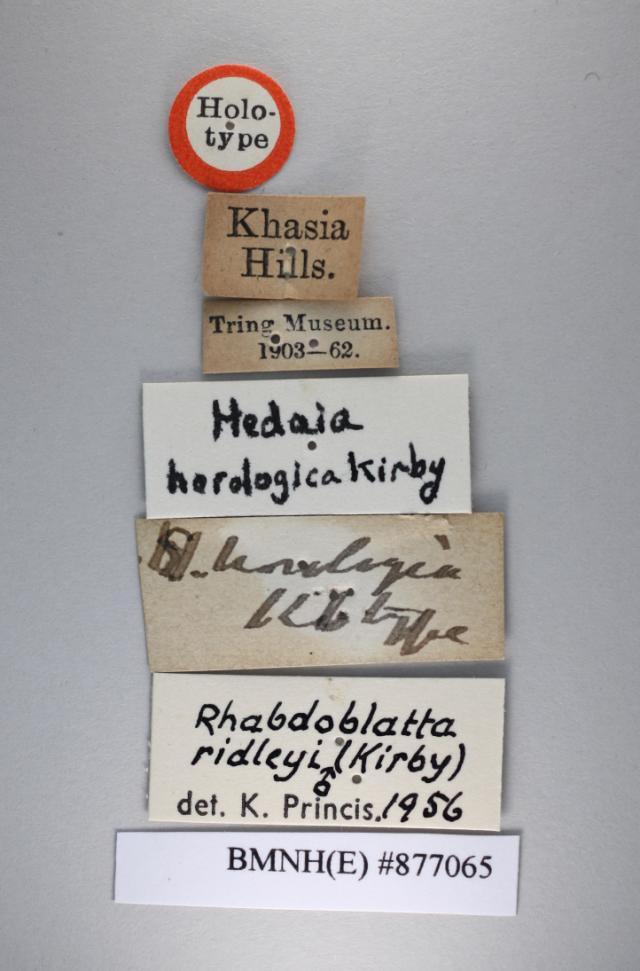 Holo-
type
Khasia
Hills.
Tring Museum.
1903—62.
Hedaia
horologica Kirby
H. horologica
Kb type
Rhabdoblatta
ridleyi (Kirby)
♂
det. K. Princis. 1956
BMNH(E) #877065